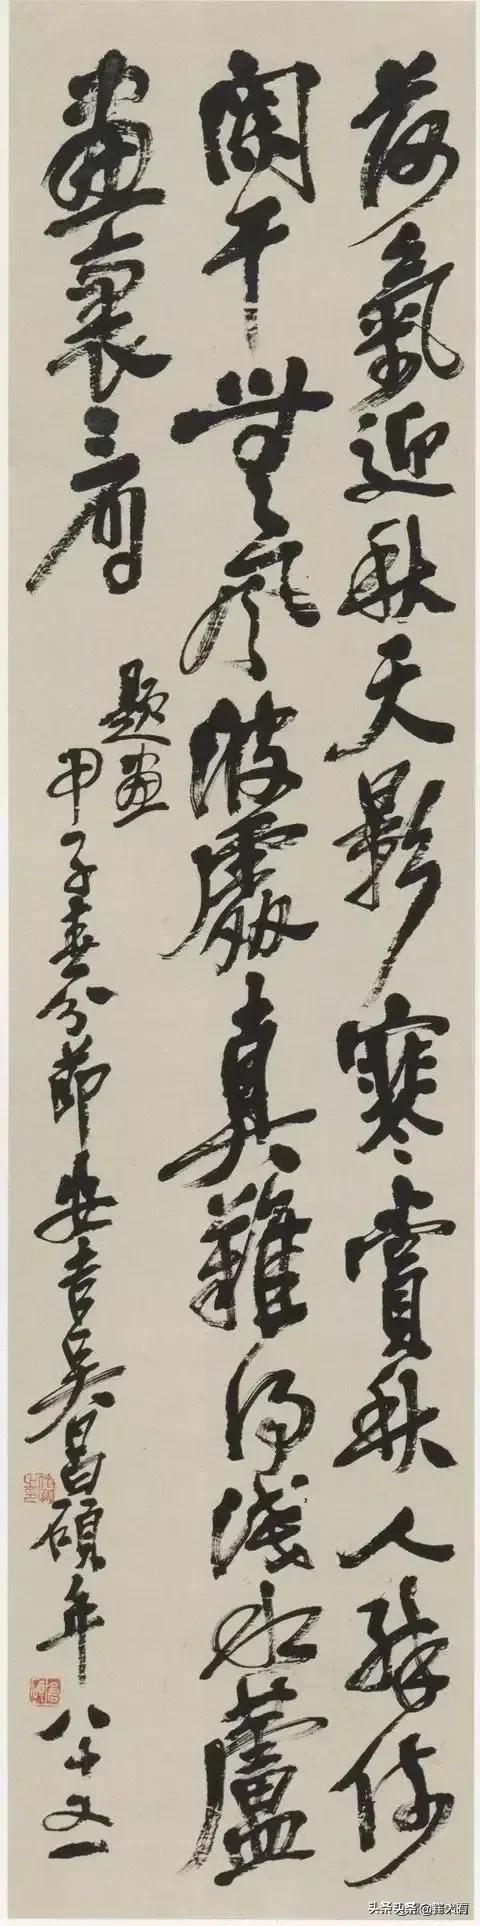 荷氣迎秋天影寒賞秋人醉倚
闌干無風波處真難得淺水蘆
畫裏看
題畫
甲子春分節安吉吳昌碩年八十又一
头条 @崔大有